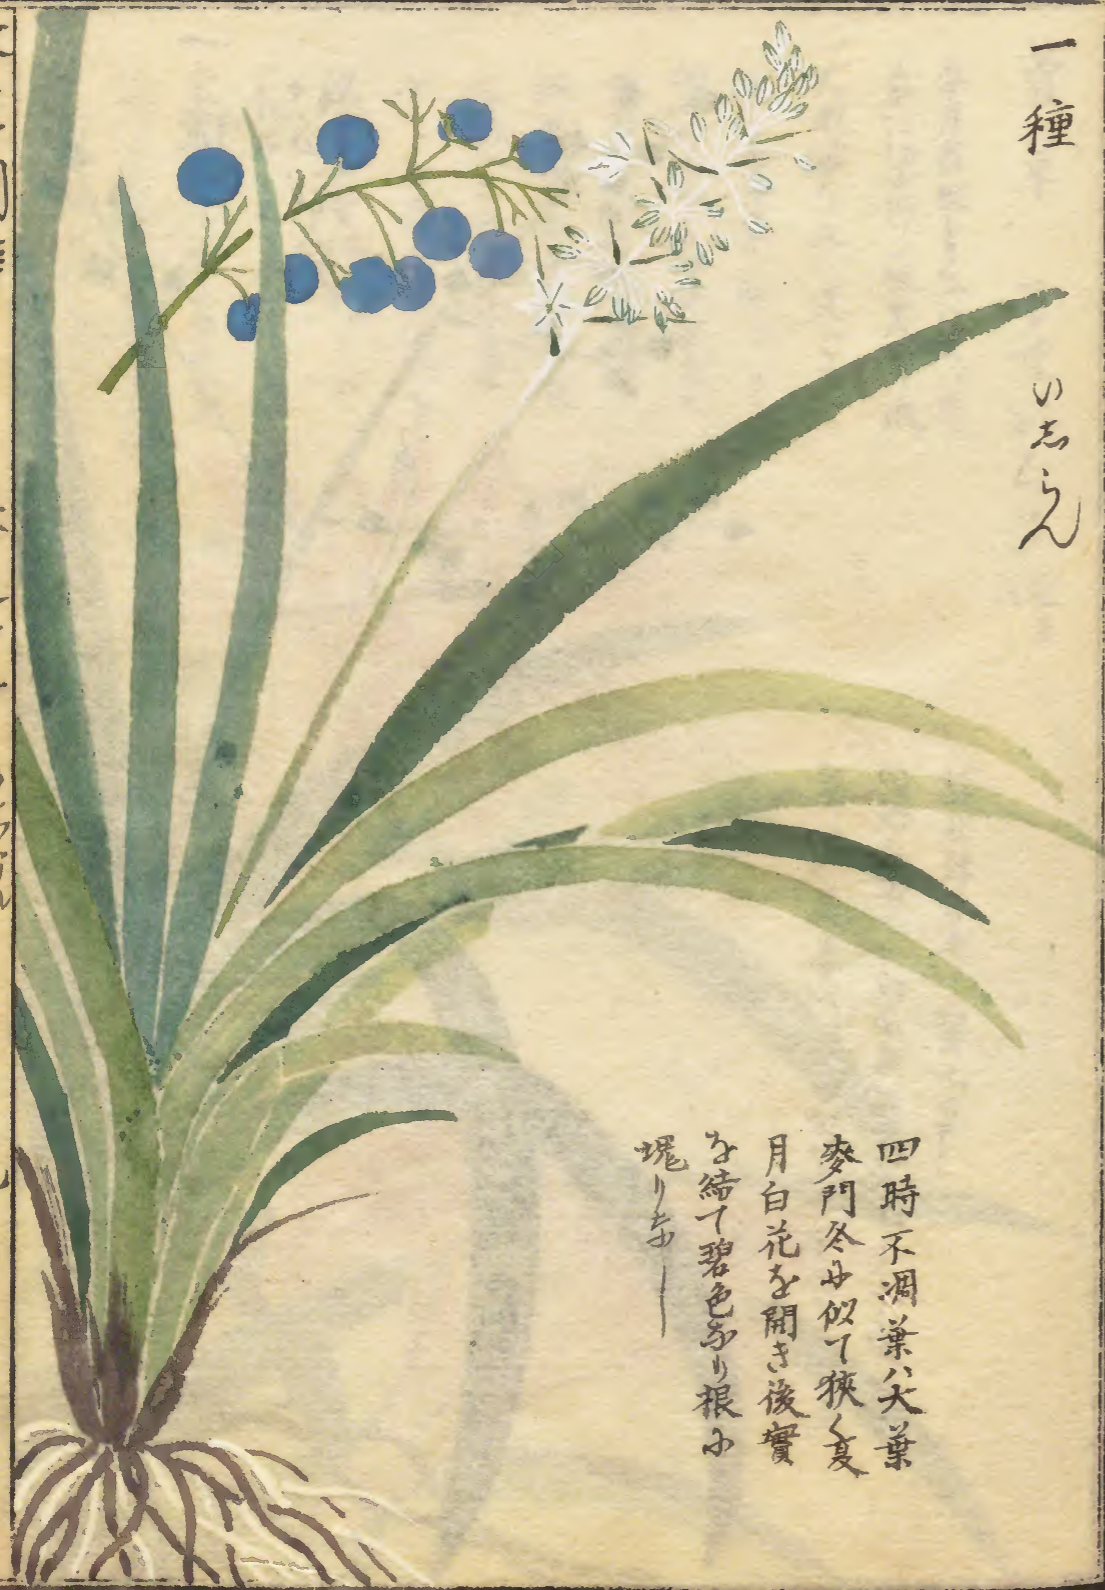 一種
いしらん
四時不凋葉ハ大葉
麥門冬に似て狹く夏
月白花を開き後實
を結て碧色なり根に
塊りなし